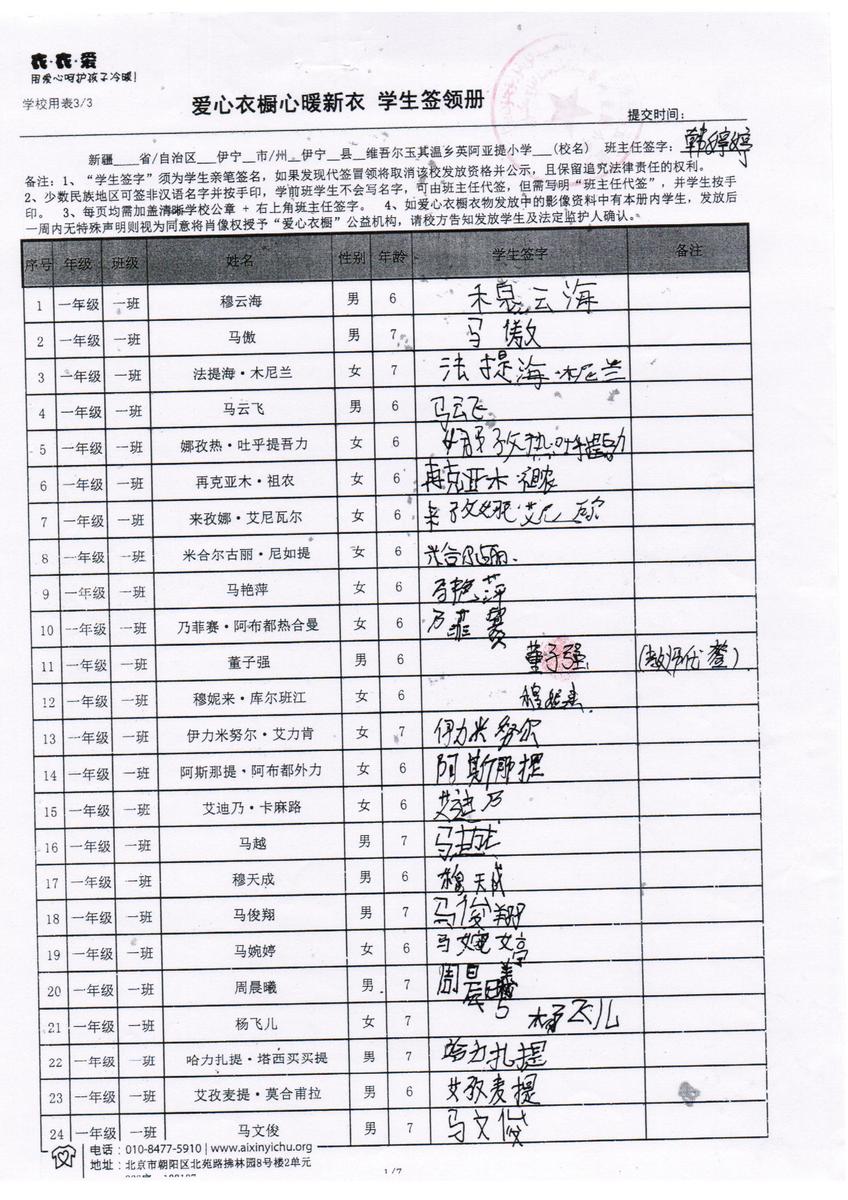 衣·衣·爱
用爱心呵护孩子冷暖!
学校用表3/3
爱心衣橱心暖新衣 学生签领册
提交时间:
新疆____省/自治区___伊宁__市/州__伊宁__县__维吾尔玉其温乡英阿亚提小学___(校名) 班主任签字: 韩婷婷
备注:1、“学生签字”须为学生亲笔签名,如果发现代签冒领将取消该校发放资格并公示,且保留追究法律责任的权利。
2、少数民族地区可签非汉语名字并按手印,学前班学生不会写名字,可由班主任代签,但需写明“班主任代签”,并学生按手
印。 3、每页均需加盖清晰学校公章 + 右上角班主任签字。 4、如爱心衣橱衣物发放中的影像资料中有本册内学生,发放后
一周内无特殊声明则视为同意将肖像权授予“爱心衣橱”公益机构,请校方告知发放学生及法定监护人确认。
序号 年级 班级 姓名 性别 年龄 学生签字 备注
1 一年级 一班 穆云海 男 6 穆云海
2 一年级 一班 马傲 男 7 马傲
3 一年级 一班 法提海·木尼兰 女 7 法提海·木尼兰
4 一年级 一班 马云飞 男 6 马云飞
5 一年级 一班 娜孜热·吐乎提吾力 女 6 娜孜热·吐乎提吾力
6 一年级 一班 再克亚木·祖农 女 6 再克亚木·祖农
7 一年级 一班 来孜娜·艾尼瓦尔 女 6 来孜娜·艾尼瓦尔
8 一年级 一班 米合尔古丽·尼如提 女 6 米合尔古丽.
9 一年级 一班 马艳萍 女 6 马艳萍
10 一年级 一班 乃菲赛·阿布都热合曼 女 6 乃菲赛
11 一年级 一班 董子强 男 6 董子强 (教师代签)
12 一年级 一班 穆妮来·库尔班江 女 6 穆妮来.
13 一年级 一班 伊力米努尔·艾力肯 女 7 伊力米努尔
14 一年级 一班 阿斯那提·阿布都外力 女 6 阿斯那提
15 一年级 一班 艾迪乃·卡麻路 女 6 艾迪乃
16 一年级 一班 马越 男 7 马越
17 一年级 一班 穆天成 男 6 穆天成
18 一年级 一班 马俊翔 男 7 马俊翔
19 一年级 一班 马婉婷 女 6 马婉婷
20 一年级 一班 周晨曦 男 7 周晨曦
21 一年级 一班 杨飞儿 女 7 杨飞儿
22 一年级 一班 哈力扎提·塔西买买提 男 7 哈力扎提
23 一年级 一班 艾孜麦提·莫合甫拉 男 6 艾孜麦提
24 一年级 一班 马文俊 男 7 马文俊
电话:010-8477-5910 | www.aixinyichu.org
地址:北京市朝阳区北苑路拂林园8号楼2单元
1/7